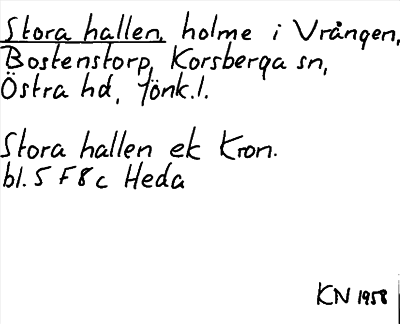 Stora hallen, holme i Vrången,
Bostenstorp, Korsberga sn,
Östra hd, Jönk.l.
Stora hallen ek Kron.
bl. 5 F 8 c Heda
KN 1958